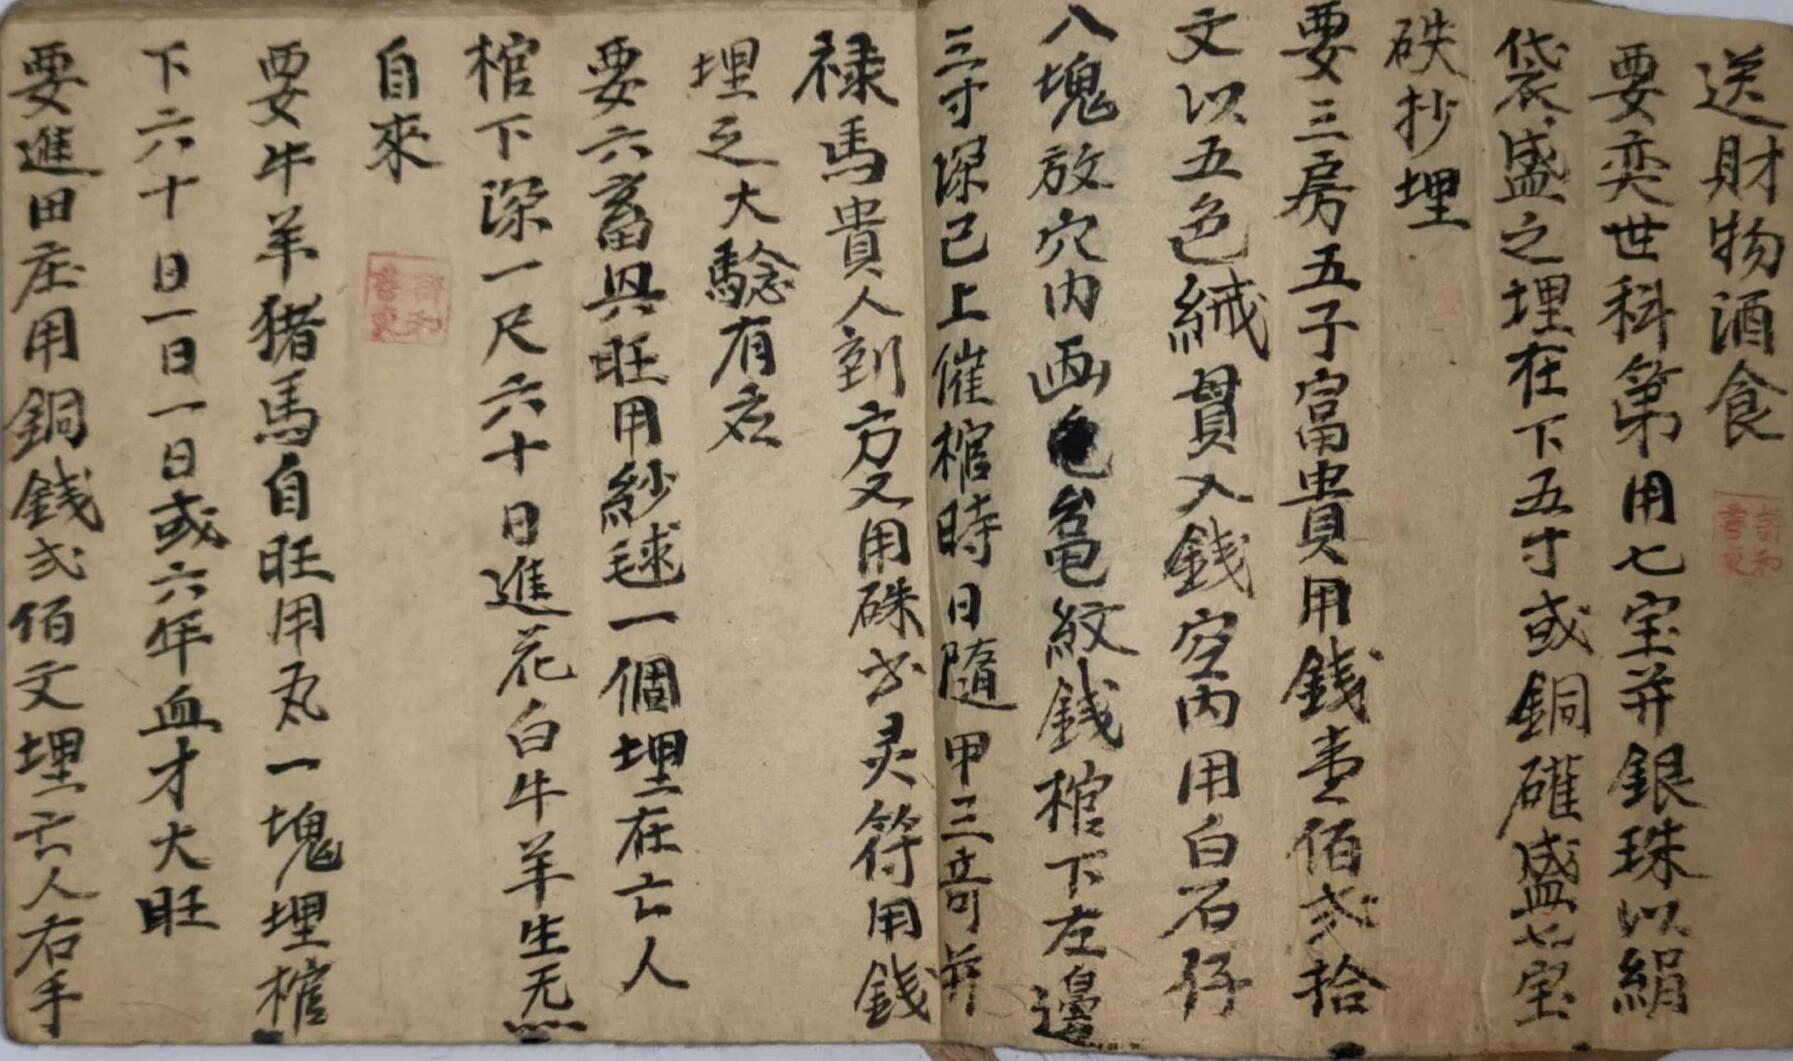 送財物酒食
要奕世科第用七宝并銀珠以絹
袋盛之埋在下五寸或銅礶盛七宝
硃抄埋
要三房五子富貴用錢壹佰弍拾
文以五色絨貫入錢空内用白石仔
八塊放穴内画龟紋錢棺下左邊
三寸深己上催棺時日隨甲三奇并
禄馬貴人到方又用硃书灵符用錢
埋之大騐有应
要六畜興旺用紗毬一個埋在亡人
棺下深一尺六十日進花白牛羊生无
自來
要牛羊猪馬自旺用丸一塊埋棺
下六十日一日一日或六年血才大旺
要進田庄用銅錢弍佰文埋亡人右手
許和
書東
許和
書東